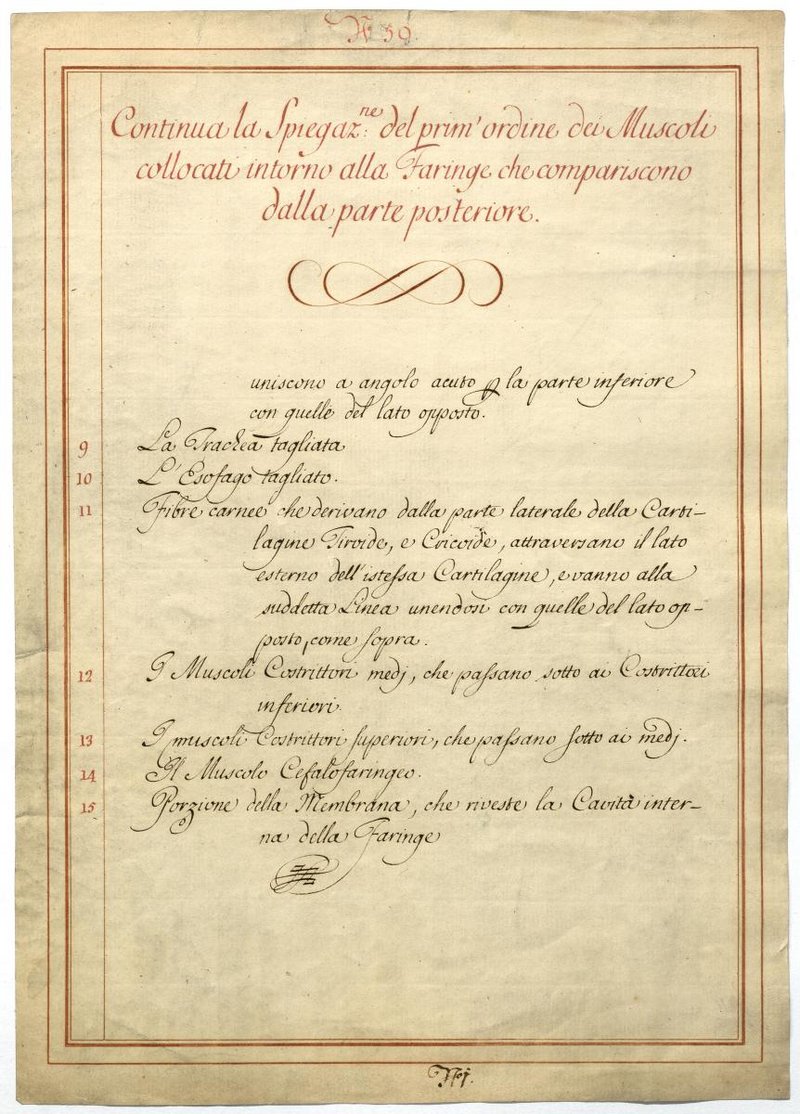 N 59
Continua la Spiegaz:ne del prim' ordine dei Muscoli
collocati intorno alla Faringe che compariscono
dalla parte posteriore.
uniscono a angolo acuto p la parte inferiore
con quelle del lato opposto.
9 La Trachea tagliata
10 L'Esofago tagliato.
11 Fibre carnee che derivano dalla parte laterale della Carti-
lagine Tiroide, e Cricoide, attraversano il lato
esterno dell'istessa Cartilagine, e vanno alla
suddetta Linea unendosi con quelle del lato op-
posto, come sopra.
12 I Muscoli Costrittori medj, che passano sotto ai Costrittori
inferiori.
13 I muscoli Costrittori superiori, che passano sotto ai medj.
14 Il Muscolo Cefalofaringeo.
15 Porzione della Membrana, che riveste la Cavità inter-
na della Faringe